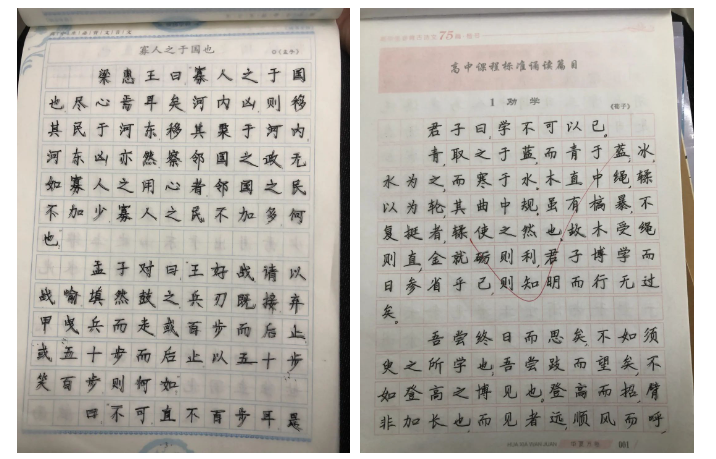 寡人之于国也
◎《孟子》
梁惠王曰寡人之于国
也尽心焉耳矣河内凶则移
其民于河东移其粟于河内
河东凶亦然察邻国之政无
如寡人之用心者邻国之民
不加少寡人之民不加多何
也
孟子对曰王好战请以
战喻填然鼓之兵刃既接弃
甲曳兵而走或百步而后止
或五十步而后止以五十步
笑百步则何如
曰不可直不百步耳是
75篇
高中课程标准诵读篇目
1 劝学
《荀子》
君子曰学不可以已。
青,取之于蓝,而青于蓝,冰,
水为之,而寒于水。木直中绳,輮
以为轮,其曲中规,虽有槁暴,不
复挺者,輮使之然也,故木受绳
则直,金就砺则利,君子博学而
日参省乎己,则知明而行无过
矣。
吾尝终日而思矣,不如须
臾之所学也,吾尝跂而望矣,不
如登高之博见也。登高而招,臂
非加长也,而见者远,顺风而呼,
001